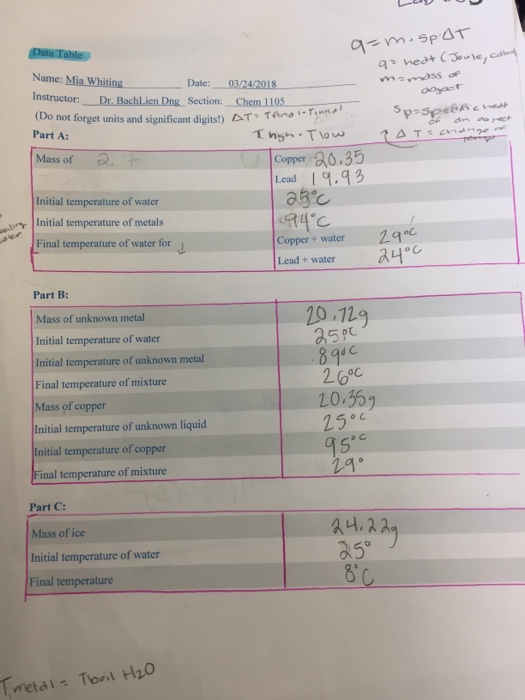 Data Table
q=m·sp·ΔT
q= heat (Joule,
m=mass of
object
Sp=Specific heat
of an object
ΔT= change of
temp
Name: Mia Whiting Date: 03/24/2018
Instructor: Dr. BachLien Dng Section: Chem 1105
(Do not forget units and significant digits!) ΔT=
Thigh - Tlow
Part A:
Mass of 2.7 Copper 20.35
Lead 19.93
Initial temperature of water 25°C
Initial temperature of metals 94°C
Final temperature of water for ↓ Copper + water 29°C
Lead + water 24°C
Part B:
Mass of unknown metal 20.72g
Initial temperature of water 25°C
Initial temperature of unknown metal 89°C
Final temperature of mixture 26°C
Mass of copper 20.35g
Initial temperature of unknown liquid 25°C
Initial temperature of copper 95°C
Final temperature of mixture 29°
Part C:
Mass of ice 24.22g
Initial temperature of water 25°
Final temperature 8°C
Tmetal = Tboil H2O